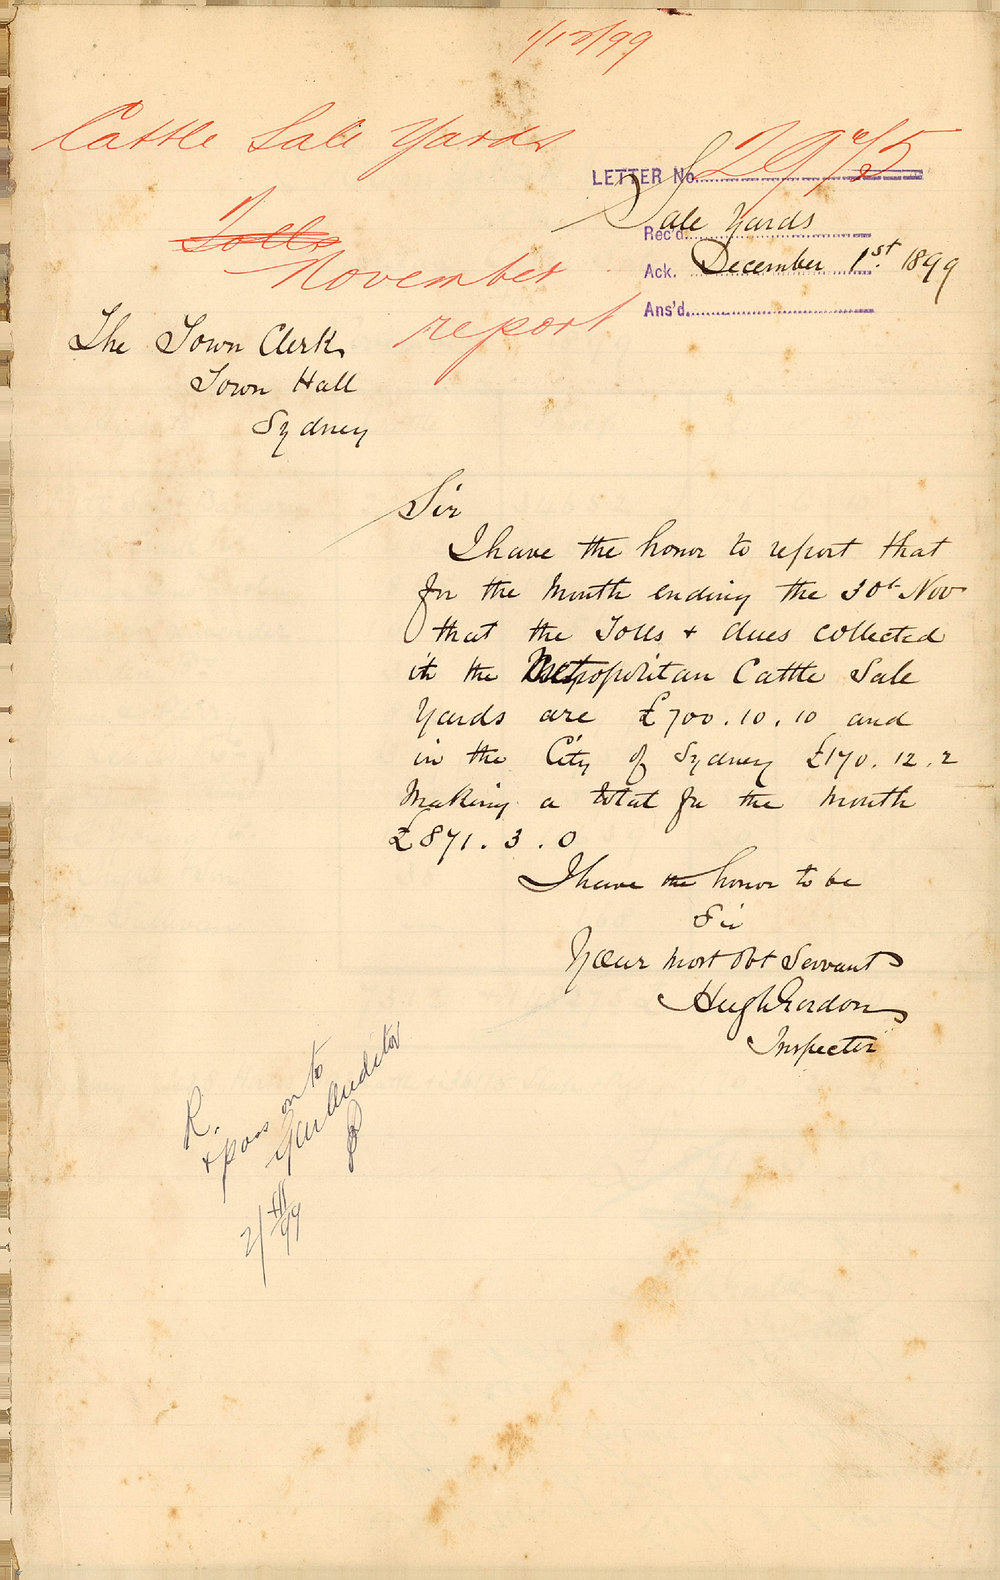 1/12/99
Cattle Sale Yards
LETTER No. 2975
Tolls
Sale Yards
Rec'd
November
Ack. December 1st. 1899
report
Ans'd.
The Town Clerk
Town Hall
Sydney
Sir
I have the honor to report that
for the Month ending the 30th Nov
that the Tolls + dues collected
in the Metropolitan Cattle Sale
Yards are £700.10.10 and
in the City of Sydney £170.12.2
Making a total for the month
£871.3.0
I have the honor to be
Sir
Your most Obt Servant
Hugh Gordon
Inspector
R.
+ pass on to
Auditor